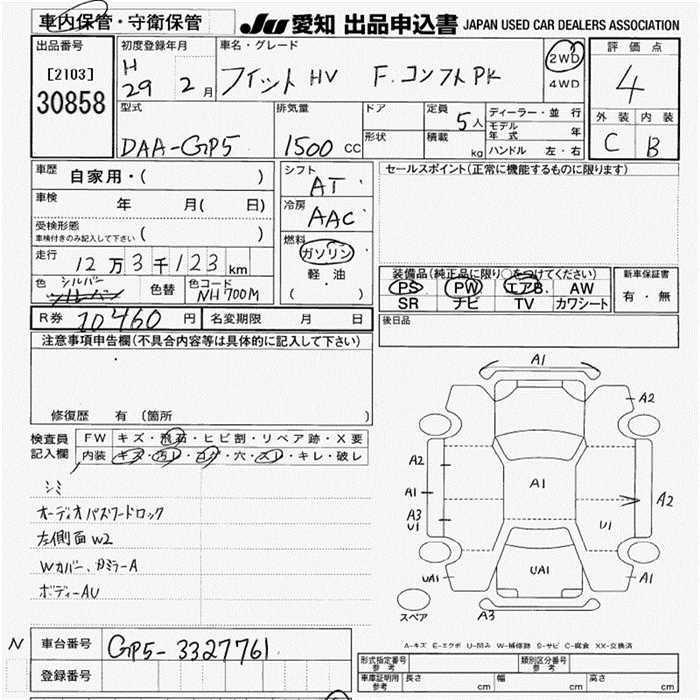 車内保管・守衛保管
JU 愛知 出品申込書 JAPAN USED CAR DEALERS ASSOCIATION
出品番号
[2103]
30858
初度登録年月
H
29 2月
車名・グレード
フィット HV F.コンフトPK
2WD
4WD
評価点
4
外装 内装
C B
型式
DAA-GP5
排気量
1500 CC
ドア
形状
定員
5人
積載
kg
ディーラー・並行
モデル年式 年
ハンドル 左・右
車歴
自家用・( )
車検
年 月( 日)
受検形態
車検付きのみ記入して下さい ( )
走行
12万3千123km
色 シルバー
色替
色コード
NH700M
シフト
AT
冷房
AAC
燃料
ガソリン
軽油
( )
セールスポイント(正常に機能するものに限ります)
装備品(純正品に限り○をつけてください)
PS PW エアB AW
SR ナビ TV カワシート
新車保証書
有・無
R券 10460円
名変期限 月 日
後日品
注意事項申告欄(不具合内容等は具体的に記入して下さい)
修復歴 有 (箇所
検査員
記入欄
FW キズ・飛石・ヒビ割・リペア跡・X要
内装 キズ・汚レ・コゲ・穴・スレ・キレ・破レ
シミ
オーディオパスワードロック
左側面W2
Wカバー、カミラーA
ボディーAU
A1
A2
A2
A1
A1
A2
A3
U1
U1
UA1
UA1
A1
スペア
A3
A-キズ E-エクボ U-凹み W-補修跡 S-サビ C-腐食 XX-交換済
N 車台番号 GP5-3327761
登録番号
形式指定番号
参考
類別区分番号
参考
車庫証明用
参考
長さ cm
幅 cm
高さ cm